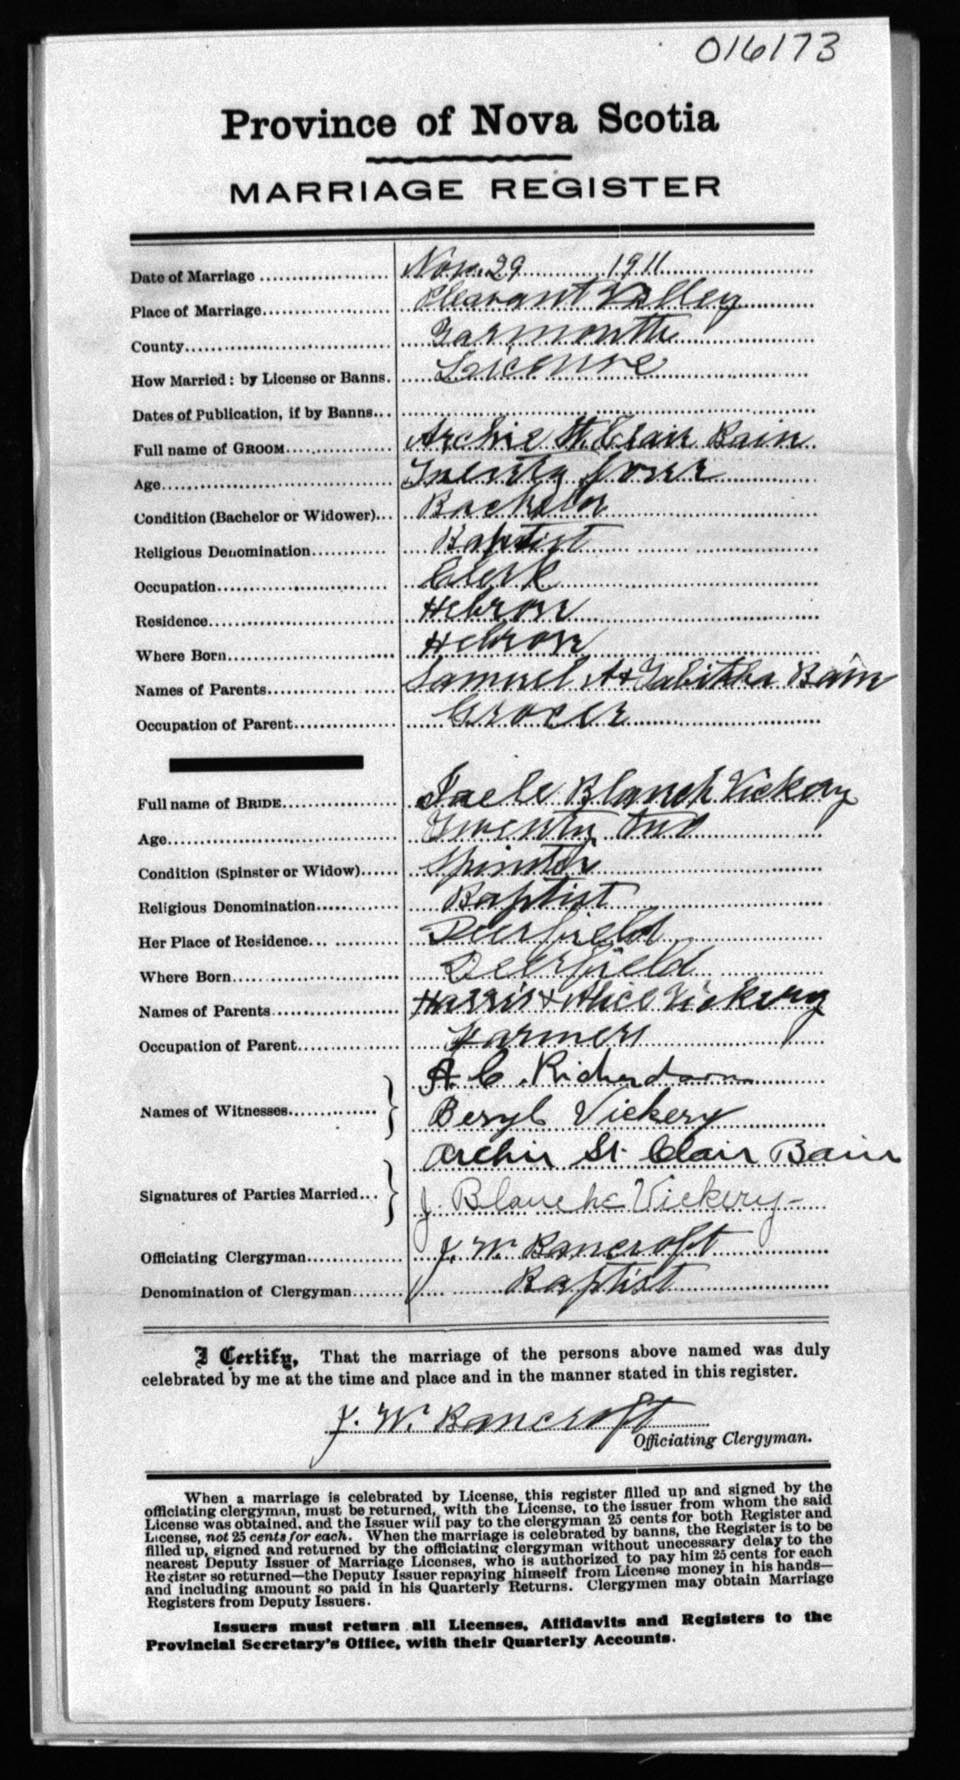 016173
Province of Nova Scotia
MARRIAGE REGISTER
Date of Marriage Nov. 29 1911
Place of Marriage Pleasant Valley
County Yarmouth
How Married: by License or Banns. License
Dates of Publication, if by Banns
Full name of GROOM Archie St. Clair Bain
Age Twenty four
Condition (Bachelor or Widower) Bachelor
Religious Denomination Baptist
Occupation Clerk
Residence Hebron
Where Born Hebron
Names of Parents Samuel A & Tabitha Bain
Occupation of Parent Grocer
Full name of BRIDE Blanch Vickery
Age Twenty two
Condition (Spinster or Widow) Spinster
Religious Denomination Baptist
Her Place of Residence Deerfield
Where Born Deerfield
Names of Parents Harris & Alice Vickery
Occupation of Parent Farmer
A. C. Richardson
Names of Witnesses
Beryl Vickery
Archie St. Clair Bain
Signatures of Parties Married
J. Blanche Vickery
Officiating Clergyman J. W. Bancroft
Denomination of Clergyman Baptist
I Certify, That the marriage of the persons above named was duly
celebrated by me at the time and place and in the manner stated in this register.
J. W. Bancroft
Officiating Clergyman.
When a marriage is celebrated by License, this register filled up and signed by the
officiating clergyman, must be returned, with the License, to the issuer from whom the said
License was obtained, and the Issuer will pay to the clergyman 25 cents for both Register and
License, not 25 cents for each. When the marriage is celebrated by banns, the Register is to be
filled up, signed and returned by the officiating clergyman without unecessary delay to the
nearest Deputy Issuer of Marriage Licenses, who is authorized to pay him 25 cents for each
Register so returned—the Deputy Issuer repaying himself from License money in his hands—
and including amount so paid in his Quarterly Returns. Clergymen may obtain Marriage
Registers from Deputy Issuers.
Issuers must return all Licenses, Affidavits and Registers to the
Provincial Secretary's Office, with their Quarterly Accounts.